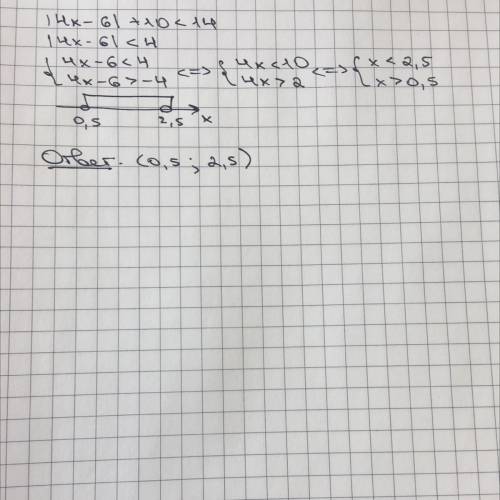 |4x-6|+10<14
|4x-6|<4
{4x-6<4 <=> {4x<10 <=> {x<2,5
{4x-6>-4 {4x>2 {x>0,5
0,5 2,5 x
Ответ. (0,5; 2,5)